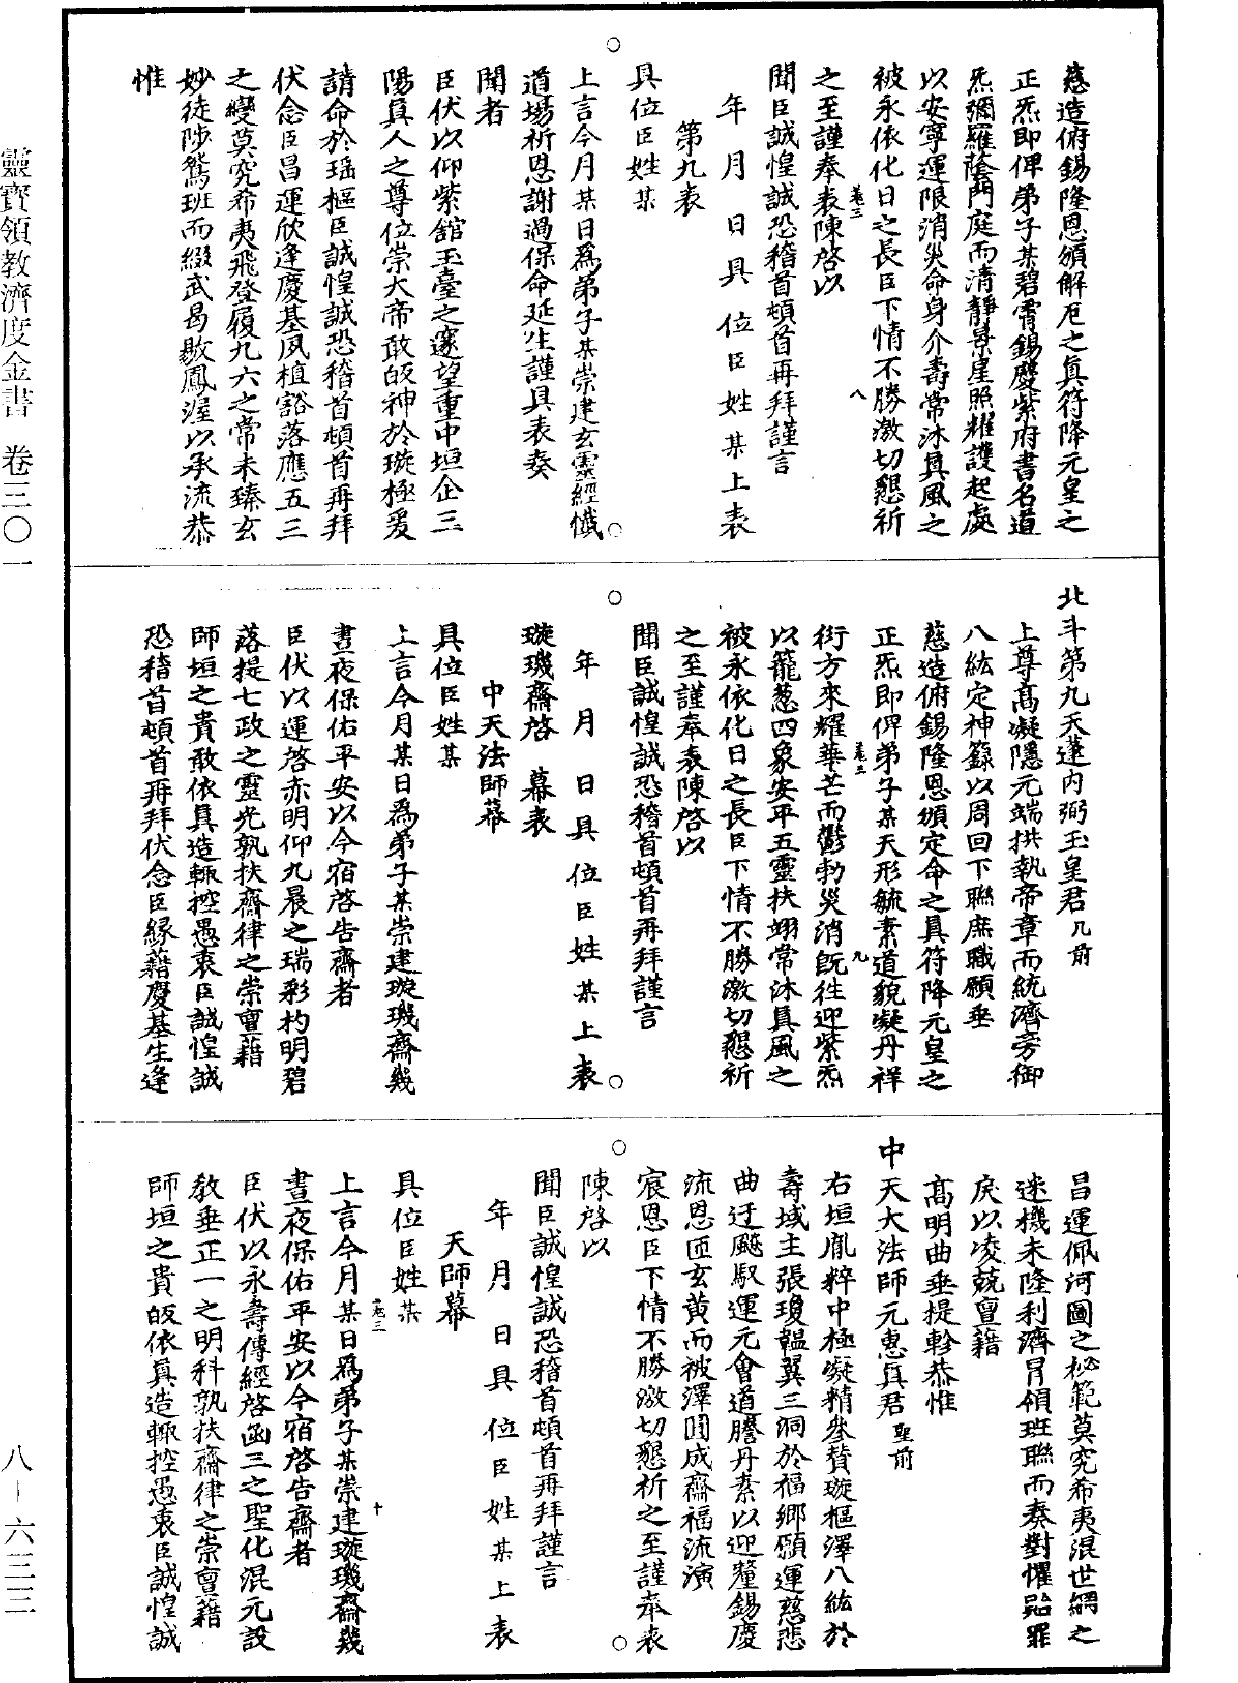 慈造俯錫隆恩頒解厄之真符降元皇之
正炁即俾弟子某碧霄錫慶紫府書名道
炁彌羅蔭門庭而清靜景星照耀護起處
以安寧運限消災命身介壽常沐真風之
被永依化日之長臣下情不勝激切懇祈
之至謹奉表陳啓以
聞臣誠惶誠恐稽首頓首再拜謹言
年月日具位臣姓某上表
第九表
具位臣姓某
上言今月某日爲弟子某崇建玄靈經懺
道場祈恩謝過保命延生謹具表奏
聞者
臣伏以仰紫館玉臺之邃望重中垣企三
陽真人之尊位崇大帝敢皈神於璇極爰
請命於瑶樞臣誠惶誠恐稽首頓首再拜
伏念臣昌運欣逢慶基夙植豁落應五三
之變莫究希夷飛登履九六之常未臻玄
妙徒陟鵷班而綴武曷歇鳳渥以承流恭
惟
北斗第九天蓬内弼玉皇君几前
上尊高凝隱元端拱執帝章而統濟旁御
八紘定神籙以周回下聯庶職願垂
慈造俯錫隆恩頒定命之真符降元皇之
正炁即俾弟子某天形毓素道貌凝丹祥
衍方來耀華芒而鬱勃災消旣往迎紫炁
以籠葱四象安平五靈扶翊常沐真風之
被永依化日之長臣下情不勝激切懇祈
之至謹奉表陳啓以
聞臣誠惶誠恐稽首頓首再拜謹言
年月日具位臣姓某上表
璇璣齋啓幕表
中天法師幕
具位臣姓某
上言今月某日爲弟子某崇建璇璣齋幾
晝夜保佑平安以今宿啓告齋者
臣伏以運啓赤明仰九晨之瑞彩杓明碧
落提七政之靈光孰扶齋律之崇亶藉
師垣之貴敢依真造輒控愚衷臣誠惶誠
恐稽首頓首再拜伏念臣緣藉慶基生逢
昌運佩河圖之祕範莫究希夷混世網之
迷機未隆利濟冒領班聯而奏對懼貽罪
戾以凌兢亶藉
高明曲垂提軫恭惟
中天大法師元惠真君聖前
右垣胤粹中極凝精參贊璇樞澤八紘於
壽域主張瓊韞翼三洞於福鄉願運慈悲
曲迂飈馭運元會道膽丹素以迎釐錫慶
流恩匝玄黄而被澤圓成齋福流演
宸恩臣下情不勝激切懇祈之至謹奉表
陳啓以
聞臣誠惶誠恐稽首頓首再拜謹言
年月日具位臣姓某上表
天師幕
具位臣姓某
上言今月某日爲弟子某崇建璇璣齋幾
晝夜保佑平安以今宿啓告齋者
臣伏以永壽傳經啓函三之聖化混元設
教垂正一之明科孰扶齋律之崇亶藉
師垣之貴皈依真造輒控愚衷臣誠惶誠
靈寶領教濟度金書 卷三〇一
八-六三三